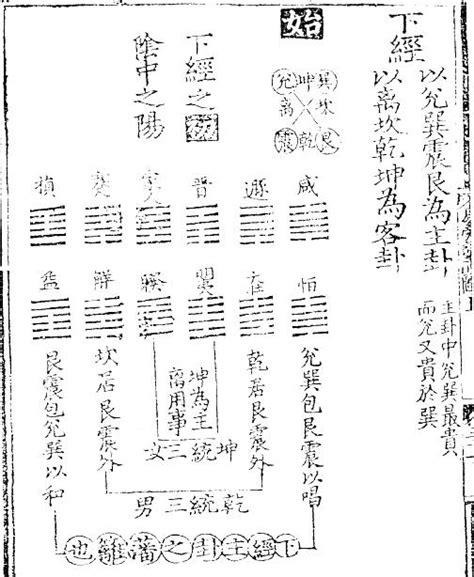 下經
以兌巽震艮為主卦
以离坎乾坤為客卦
主卦中兌巽最貴
而兌又貴於巽
始
兌坤巽
离坎
震乾艮
下經之
陰中之陽
咸
遯
晋
家人
蹇
損
恒
壯
明夷
睽
解
益
兌巽包艮震以唱
乾居艮震外
坤為主
离用事
坎居艮震外
艮震包兌巽以和
坤統三女
乾統三男
下經主卦之藩籬也